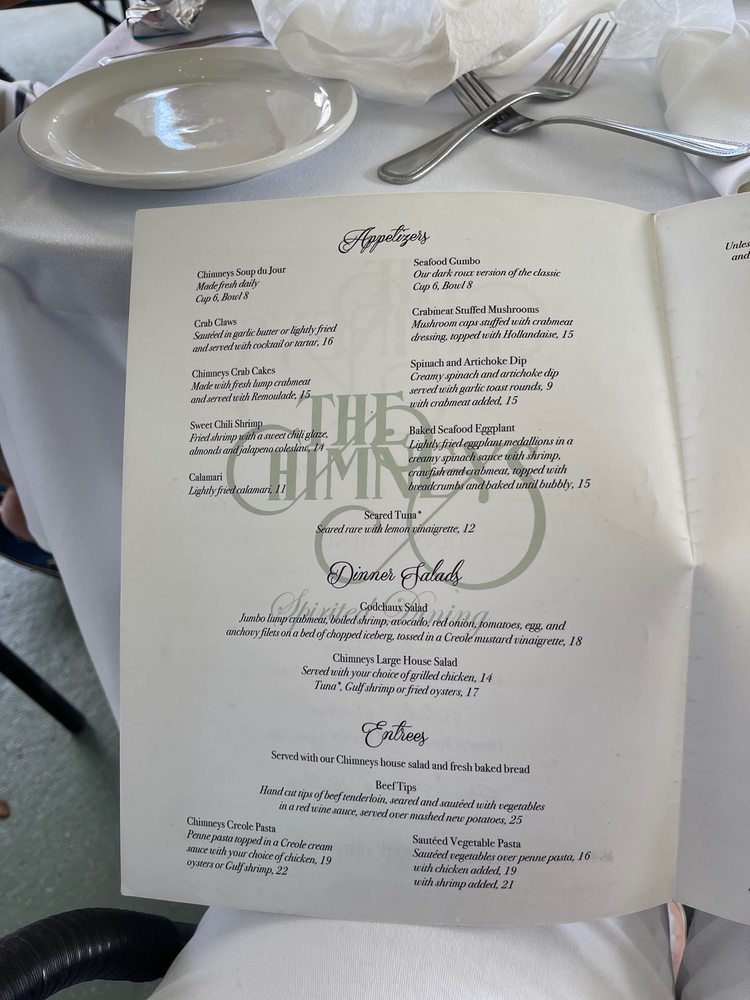 Appetizers
Chimneys Soup du Jour
Made fresh daily
Cup 6, Bowl 8
Crab Claws
Sautéed in garlic butter or lightly fried
and served with cocktail or tartar, 16
Chimneys Crab Cakes
Made with fresh lump crabmeat
and served with Remoulade, 15
Sweet Chili Shrimp
Fried shrimp with a sweet chili glaze,
almonds and jalapeno coleslaw, 14
Calamari
Lightly fried calamari, 11
Seafood Gumbo
Our dark roux version of the classic
Cup 6, Bowl 8
Crabmeat Stuffed Mushrooms
Mushroom caps stuffed with crabmeat
dressing, topped with Hollandaise, 15
Spinach and Artichoke Dip
Creamy spinach and artichoke dip
served with garlic toast rounds, 9
with crabmeat added, 15
Baked Seafood Eggplant
Lightly fried eggplant medallions in a
creamy spinach sauce with shrimp,
crawfish and crabmeat, topped with
breadcrumbs and baked until bubbly, 15
THE
CHIMNEYS
Seared Tuna*
Seared rare with lemon vinaigrette, 12
Dinner Salads
Spirited Dining
Godchaux Salad
Jumbo lump crabmeat, boiled shrimp, avocado, red onion, tomatoes, egg, and
anchovy filets on a bed of chopped iceberg, tossed in a Creole mustard vinaigrette, 18
Chimneys Large House Salad
Served with your choice of grilled chicken, 14
Tuna*, Gulf shrimp or fried oysters, 17
Entrees
Served with our Chimneys house salad and fresh baked bread
Beef Tips
Hand cut tips of beef tenderloin, seared and sautéed with vegetables
in a red wine sauce, served over mashed new potatoes, 25
Chimneys Creole Pasta
Penne pasta topped in a Creole cream
sauce with your choice of chicken, 19
oysters or Gulf shrimp, 22
Sautéed Vegetable Pasta
Sautéed vegetables over penne pasta, 16
with chicken added, 19
with shrimp added, 21
Unles
and